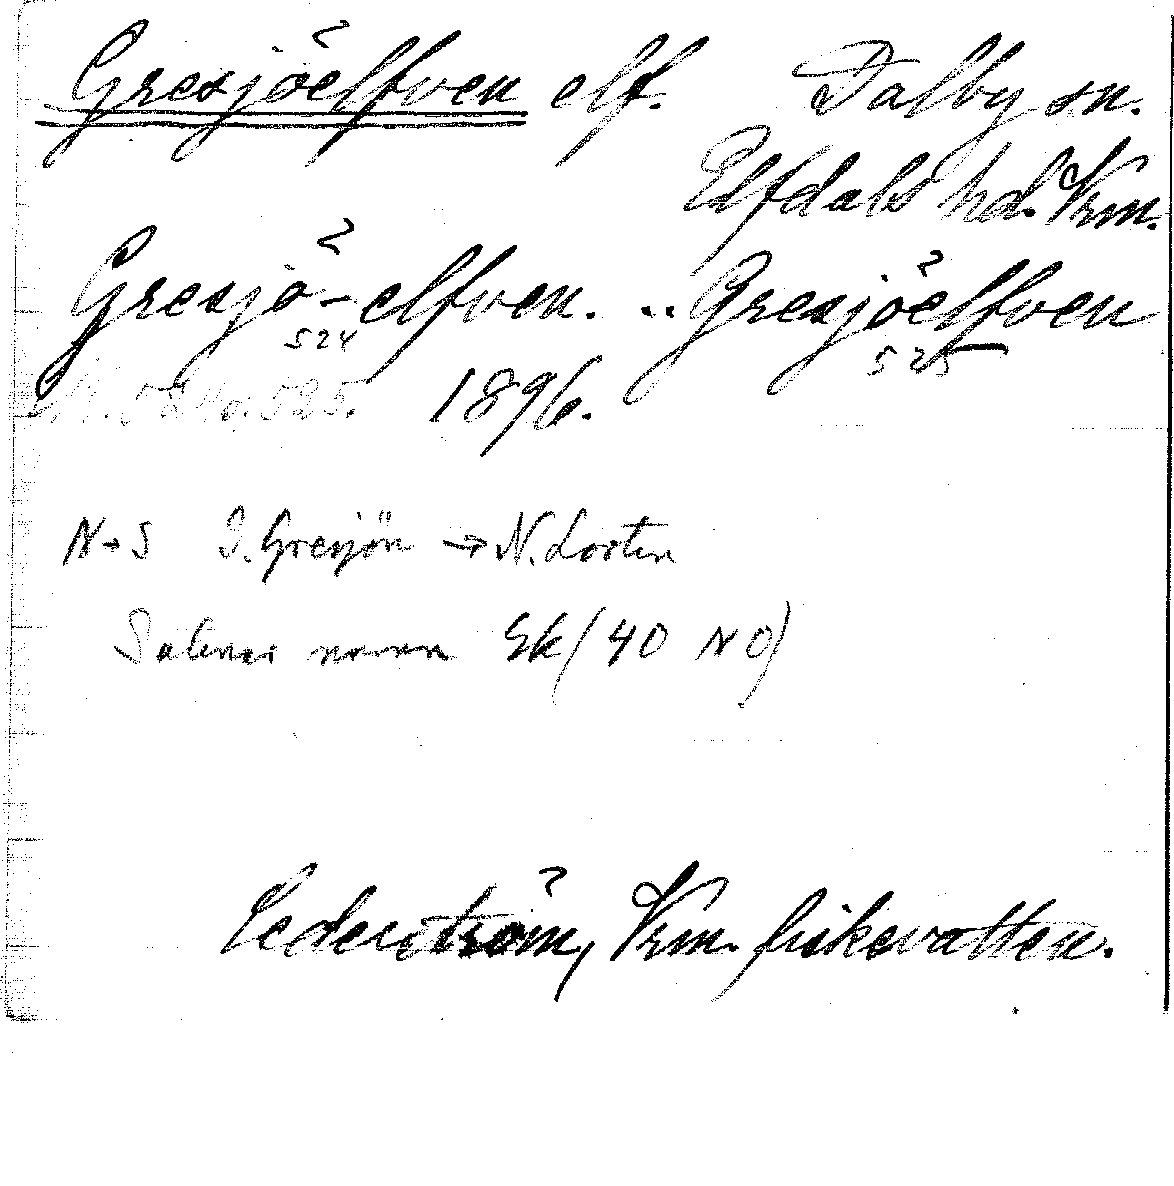 Gresjöelfven elf. Dalby sn.
Elfdals hd. Vrm.
Gresjö-elfven. .. Gresjöelfven
524 525
524 o. 525. 1896.
N→S S. Gresjön → N. Lovten
Saknar namn Ek (40 NO)
Cederström, Vrm. fiskevatten.